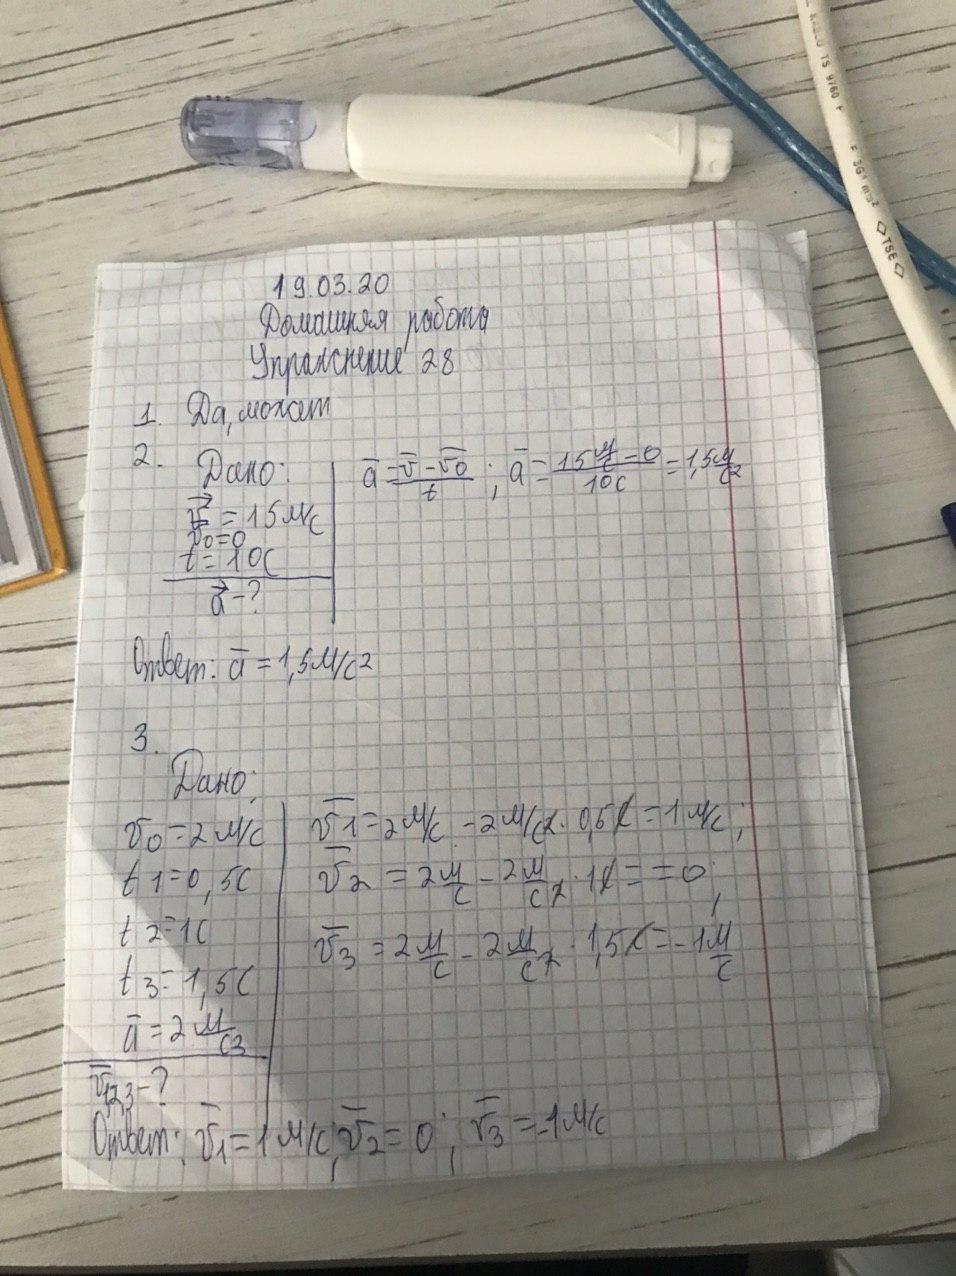 19.03.20
Домашняя работа
Упражнение 28
1. Да, может
2. Дано:
v⃗ = 15 м/с
v0=0
t = 10с
a⃗ - ?
a̅ = (v̅ - v̅0)/t ; a̅ = (15 м/с - 0)/10с = 1,5 м/с2
Ответ: a̅ = 1,5 м/с2
3.
Дано:
v0 = 2 м/с
t1 = 0,5с
t2 = 1с
t3 = 1,5с
a̅ = 2 м/с2
v̅1,2,3 - ?
v̅1 = 2 м/с - 2 м/с2 · 0,5с = 1 м/с ;
v̅2 = 2 м/с - 2 м/с2 · 1с = = 0 ;
v̅3 = 2 м/с - 2 м/с2 · 1,5с = -1 м/с
Ответ: v̅1 = 1 м/с ; v̅2 = 0 ; v̅3 = -1 м/с
TS 9760
F 3G1 mm²
◇TSE◇